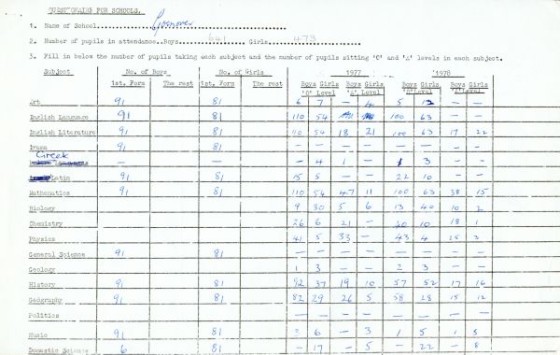 QUESTIONAIRE FOR SCHOOLS.
1. Name of School
2. Number of pupils in attendance. Boys 641 Girls 473
3. Fill in below the number of pupils taking each subject and the number of pupils sitting 'O' and 'A' levels in each subject.
Subject No. of Boys No. of Girls 1977 1978
1st. Form The rest 1st. Form The rest Boys Girls Boys Girls Boys Girls Boys Girls
'O' Level 'A' Level 'O' Level 'A' Level
Art 91 81 6 7 — 5 — —
English Language 91 81 110 54 100 63 — —
English Literature 91 81 110 54 18 21 100 63 17 22
Drama 91 81 — — — — — — — —
Greek — — — 4 1 — 3 — —
Latin 91 81 15 5 — — 22 10 — —
Mathematics 91 81 110 54 47 11 100 63 38 15
Biology 9 30 5 6 13 40 10 2
Chemistry 26 6 21 — 20 10 18 1
Physics 41 5 33 — 43 4 15 3
General Science 91 81 — — — — — — — —
Geology 1 3 — — 2 3 — —
History 91 81 92 37 19 10 57 52 17 16
Geography 91 81 82 29 26 5 58 28 15 12
Politics — — — — — — — —
Music 91 81 2 6 — 3 1 5 1 5
Domestic Science 6 81 — 17 — 5 — 22 — 8